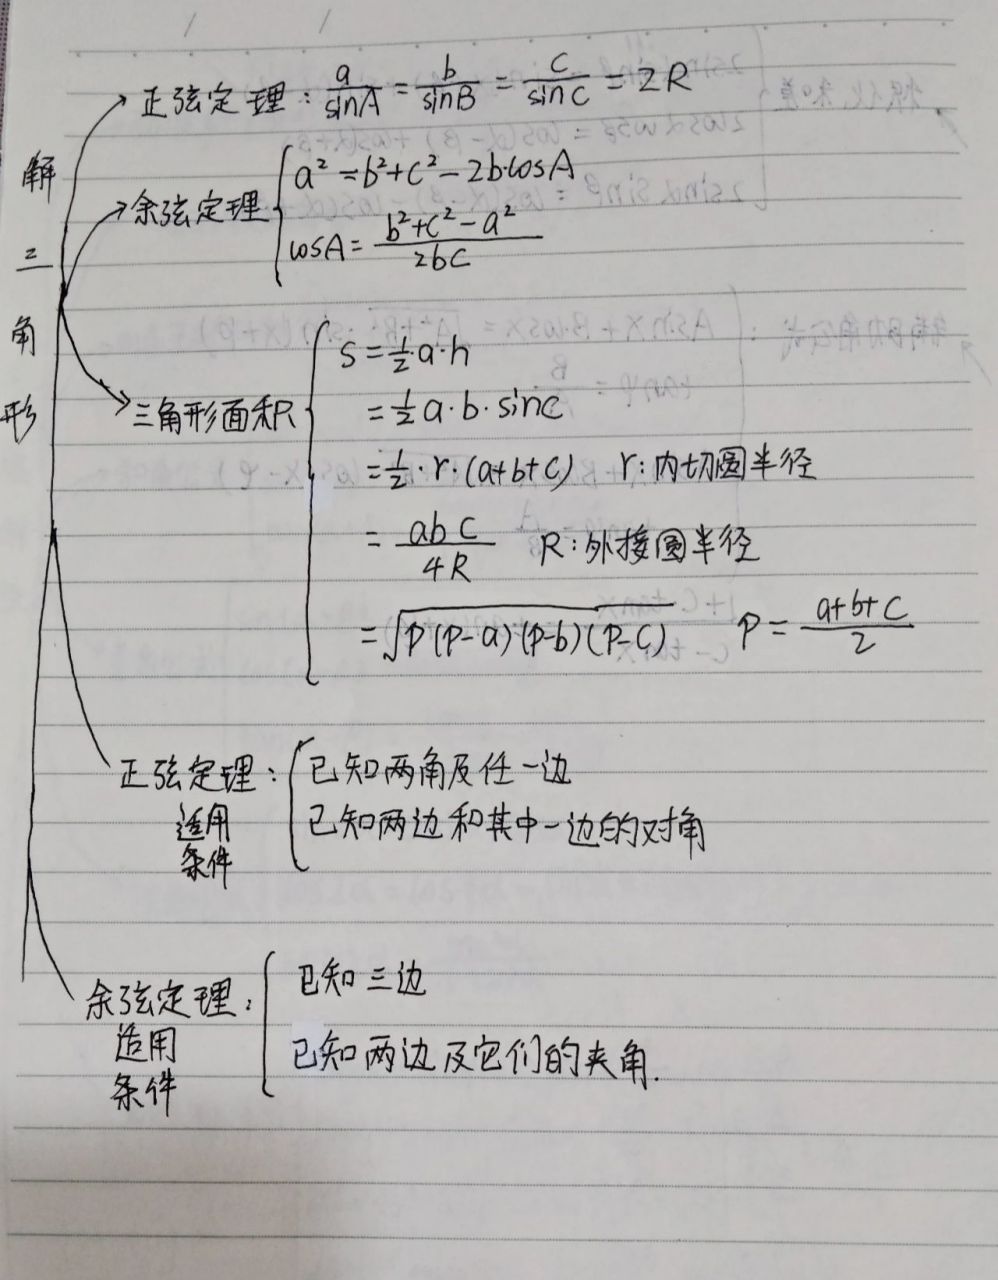 解三角形
正弦定理：a/sinA = b/sinB = c/sinC = 2R
余弦定理
a² = b²+c² - 2b·cosA
cosA = (b²+c²-a²)/2bc
三角形面积
S = 1/2·a·h
= 1/2 a·b·sinc
= 1/2·r·(a+b+c) r:内切圆半径
= abc/4R R:外接圆半径
= √p(p-a)(p-b)(p-c) P = (a+b+c)/2
正弦定理：
适用
条件
已知两角及任一边
已知两边和其中一边的对角
余弦定理：
适用
条件
已知三边
已知两边及它们的夹角.